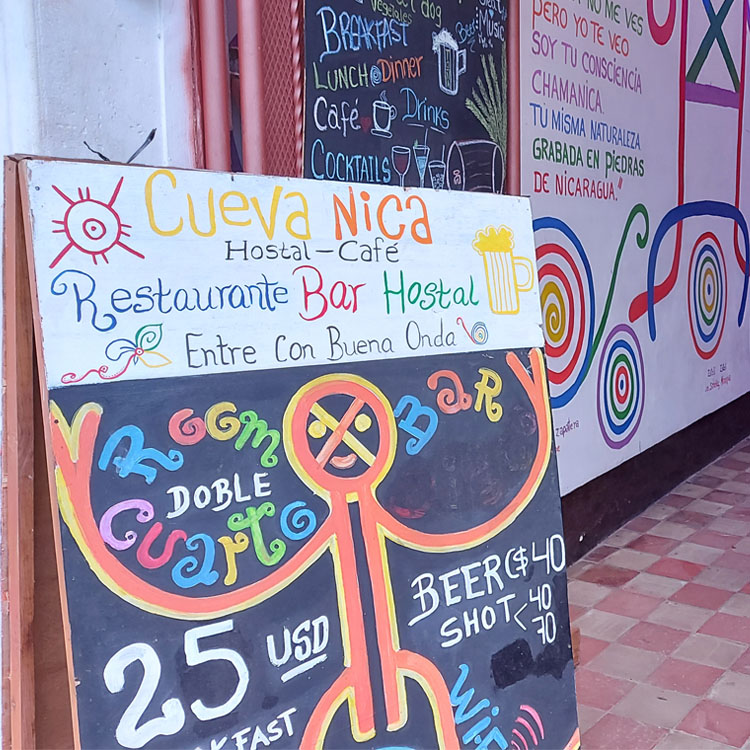 Vegetales
dog
BREAKFAST
LUNCH Dinner
Café Drinks
COCKTAILS
Music
NO ME VES
PERO YO TE VEO
SOY TU CONSCIENCIA
CHAMANICA.
TU MISMA NATURALEZA
GRABADA EN PIEDRAS
DE NICARAGUA."
Cueva Nica
Hostal - Café
Restaurante Bar Hostal
Entre Con Buena Onda
Room BAR
DOBLE
Cuarto
BEER C$ 40
SHOT < 40
70
25 USD
WiFi